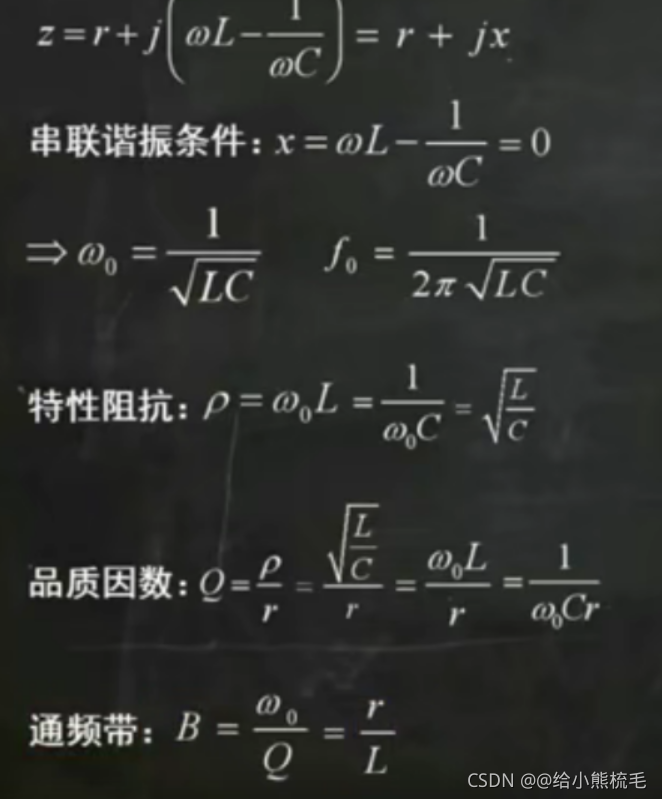 z = r + j(ωL − 1/ωC) = r + jx
串联谐振条件: x = ωL − 1/ωC = 0
⇒ ω₀ = 1/√(LC)    f₀ = 1/(2π√(LC))
特性阻抗: ρ = ω₀L = 1/(ω₀C) = √(L/C)
品质因数: Q = ρ/r = √(L/C)/r = ω₀L/r = 1/(ω₀Cr)
通频带: B = ω₀/Q = r/L
CSDN @@给小熊梳毛